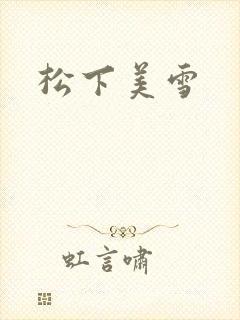 松下美雪
虹言啸